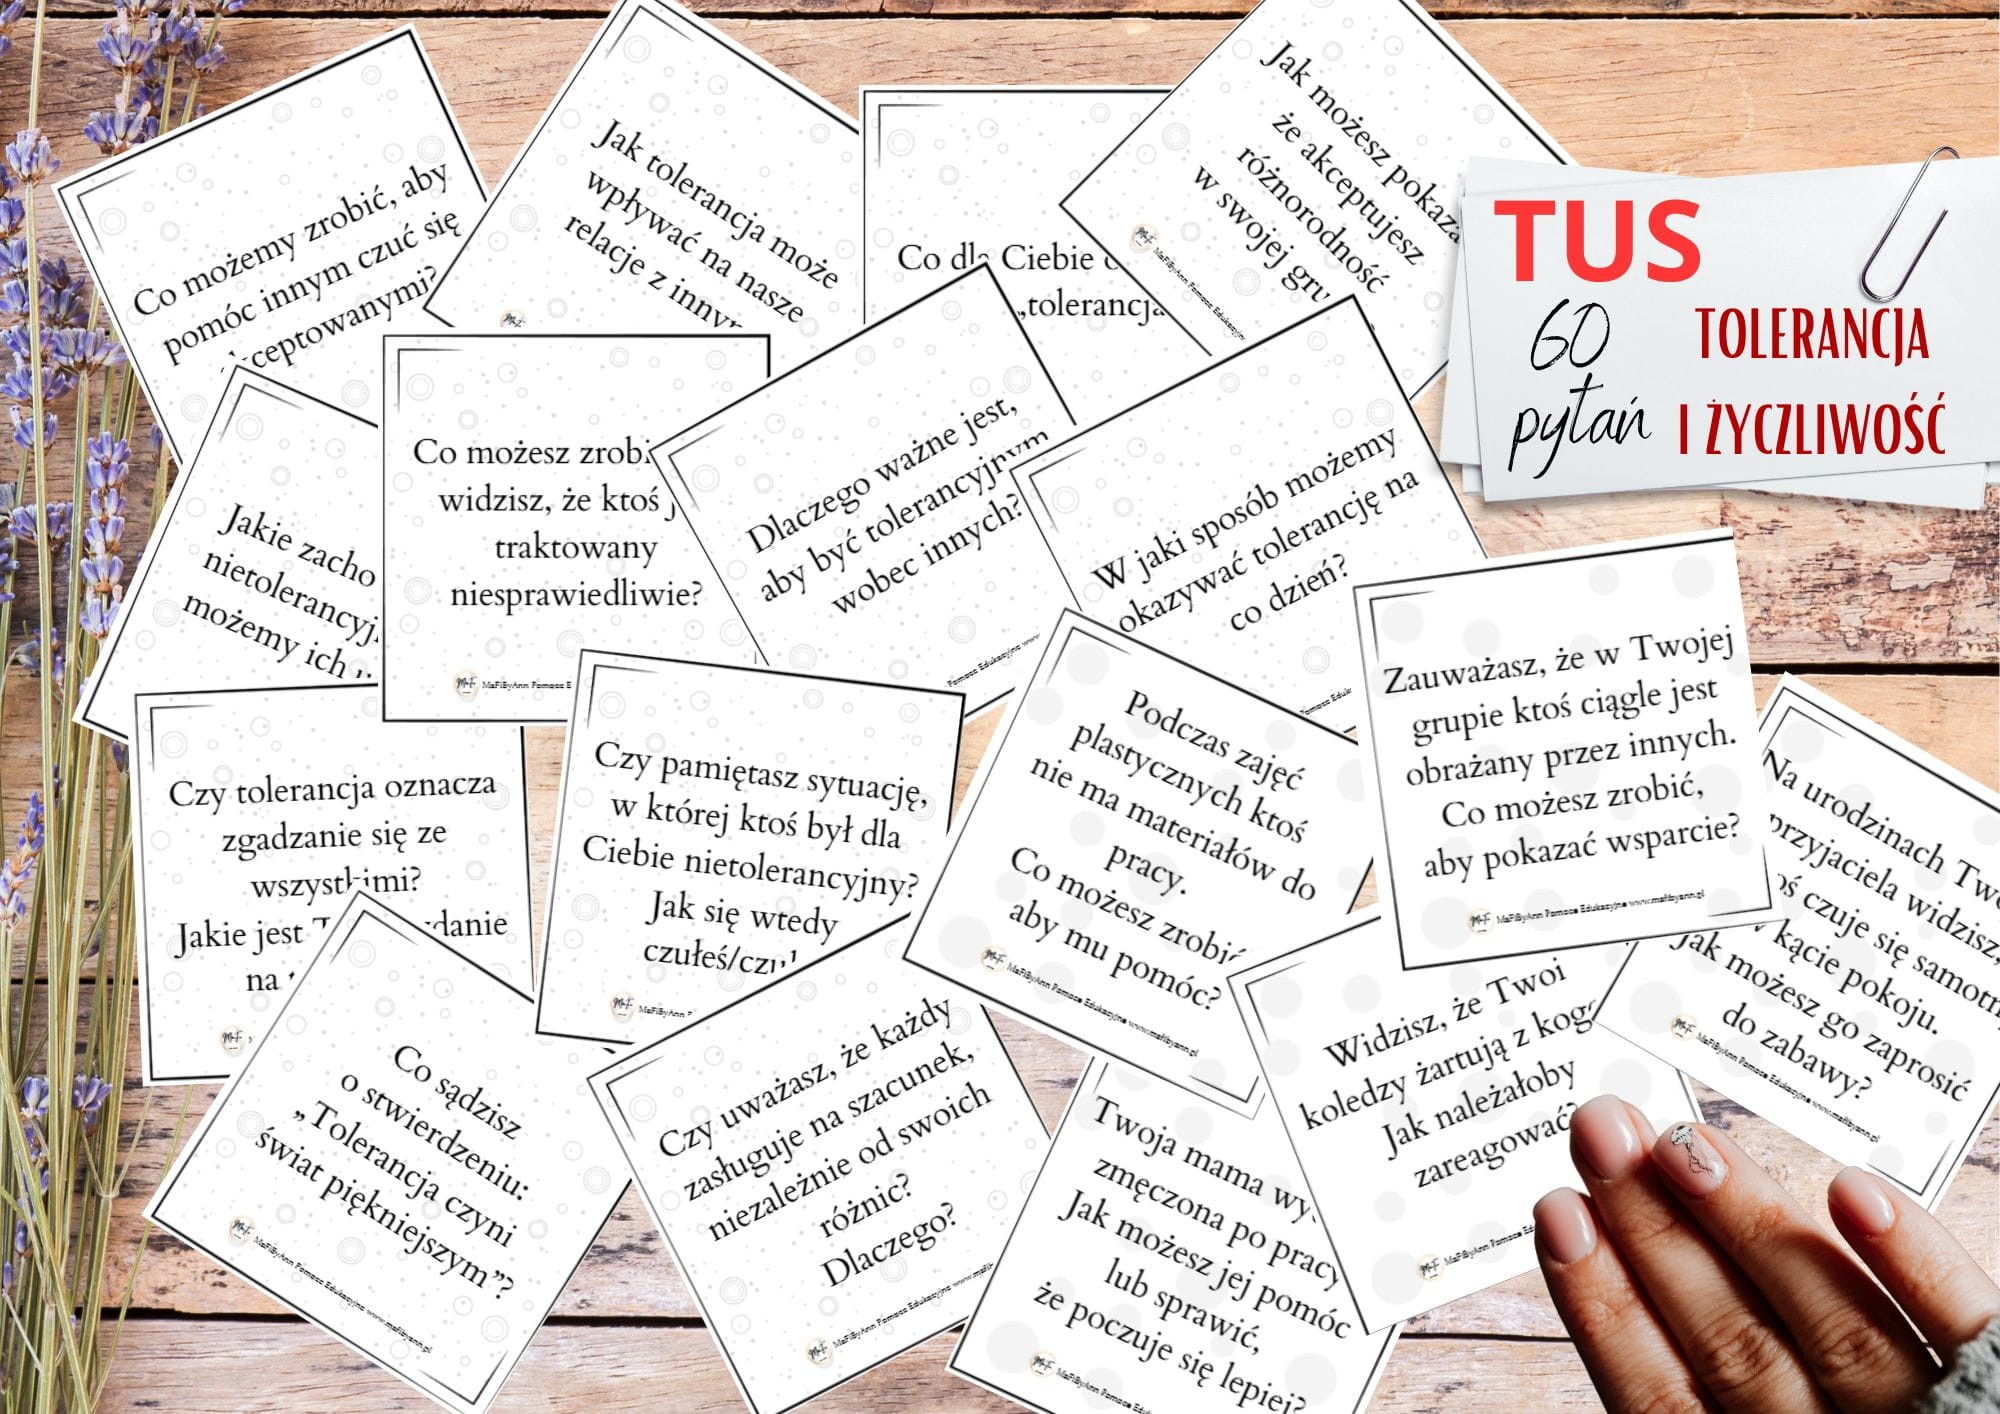 Co możemy zrobić, aby
pomóc innym czuć się
akceptowanymi?
Jak tolerancja może
wpływać na nasze
relacje z innym
Co dla Ciebie
„tolerancja
Jak możesz pokaza
że akceptujesz
różnorodność
w swojej gru
MaFiByAnn Pomoce Edukacyjne
TUS
60
pytań
TOLERANCJA
I ŻYCZLIWOŚĆ
Jakie zacho
nietolerancyj
możemy ich
Co możesz zrobi
widzisz, że ktoś j
traktowany
niesprawiedliwie?
MaFiByAnn Pomoce E
Dlaczego ważne jest,
aby być tolerancyjnym
wobec innych?
Pomoce Edukacyjne
W jaki sposób możemy
okazywać tolerancję na
co dzień?
Pomoce Eduk
Czy tolerancja oznacza
zgadzanie się ze
wszystkimi?
Jakie jest T danie
na
Czy pamiętasz sytuację,
w której ktoś był dla
Ciebie nietolerancyjny?
Jak się wtedy
czułeś/czuł
MaFiByAnn
Podczas zajęć
plastycznych ktoś
nie ma materiałów do
pracy.
Co możesz zrobić
aby mu pomóc?
MaFiByAnn Pomoce Edukacyjne www.mafibyann.pl
Zauważasz, że w Twojej
grupie ktoś ciągle jest
obrażany przez innych.
Co możesz zrobić,
aby pokazać wsparcie?
MaFiByAnn Pomoce Edukacyjne www.mafibyann.pl
Na urodzinach Two
przyjaciela widzisz,
oś czuje się samotn
kącie pokoju.
Jak możesz go zaprosić
do zabawy?
MaFiByAnn Pomoce Edukacyjne www.mafibyann.pl
Co sądzisz
o stwierdzeniu:
„Tolerancja czyni
świat piękniejszym”?
MaFiByAnn Pomoce Edukacyjne www.mafibyann.pl
Czy uważasz, że każdy
zasługuje na szacunek,
niezależnie od swoich
różnic?
Dlaczego?
MaFiByAnn Pomoce Edukacyjne www.mafib
Twoja mama wy
zmęczona po pracy
Jak możesz jej pomóc
lub sprawić,
że poczuje się lepiej?
MaFiByAnn Pomoce Edukacyjne
Widzisz, że Twoi
koledzy żartują z kogo
Jak należałoby
zareagować?
MaFiByAnn Pomoce Edukacyjne